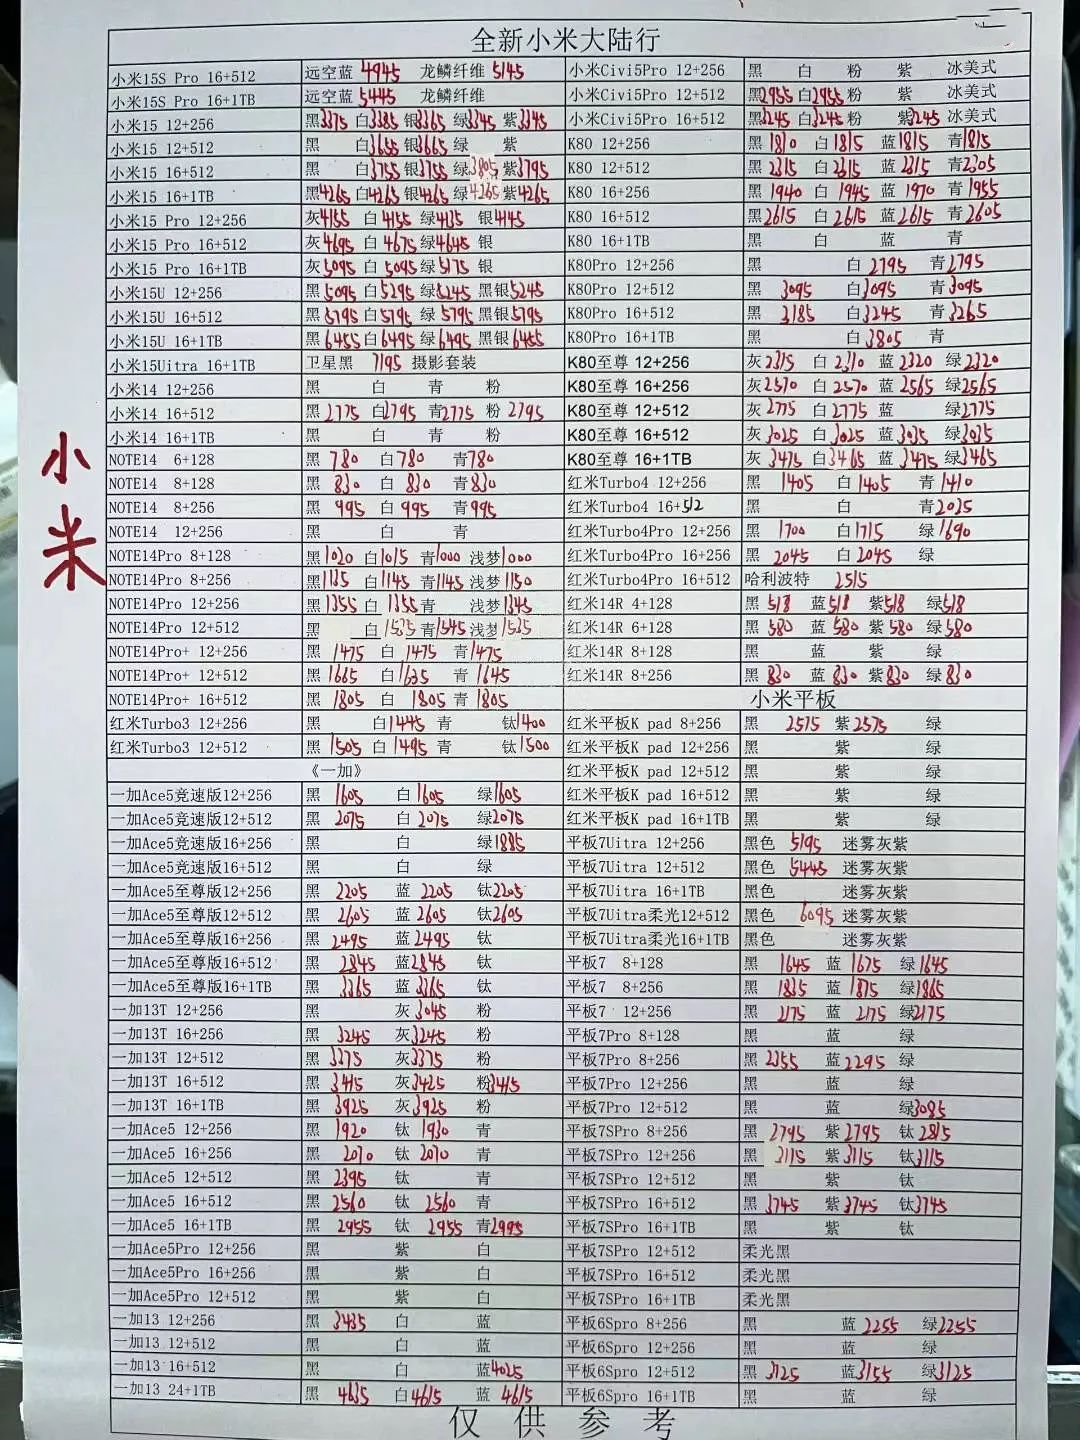 全新小米大陆行
小米15S Pro 16+512 远空蓝 4945 龙鳞纤维 5145 小米Civi5Pro 12+256 黑 白 粉 紫 冰美式
小米15S Pro 16+1TB 远空蓝 5445 龙鳞纤维 小米Civi5Pro 12+512 黑2955 白2955 粉 紫 冰美式
小米15 12+256 黑3375 白3385 银3365 绿3345 紫3345 小米Civi5Pro 16+512 黑3245 白3245 粉 紫3245 冰美式
小米15 12+512 黑 白3655 银3665 绿 紫 K80 12+256 黑1830 白1815 蓝1815 青1815
小米15 16+512 黑 白3755 银3755 绿3805 紫3795 K80 12+512 黑2315 白2315 蓝2315 青2305
小米15 16+1TB 黑4265 白4265 银4265 绿4265 紫4265 K80 16+256 黑1940 白1945 蓝1970 青1955
小米15 Pro 12+256 灰4155 白4155 绿4135 银4145 K80 16+512 黑2615 白2615 蓝2615 青2605
小米15 Pro 16+512 灰4695 白4675 绿4645 银 K80 16+1TB 黑 白 蓝 青
小米15 Pro 16+1TB 灰5095 白5095 绿5175 银 K80Pro 12+256 黑 白2795 青2795
小米15U 12+256 黑5095 白5295 绿5245 黑银5245 K80Pro 12+512 黑 3095 白3095 青3095
小米15U 16+512 黑5795 白5795 绿5795 黑银5795 K80Pro 16+512 黑 3185 白3245 青3265
小米15U 16+1TB 黑6455 白6495 绿6495 黑银6455 K80Pro 16+1TB 黑 白3805 青
小米15Uitra 16+1TB 卫星黑 7195 摄影套装 K80至尊 12+256 灰2315 白2310 蓝2320 绿2320
小米14 12+256 黑 白 青 粉 K80至尊 16+256 灰2570 白2570 蓝2565 绿2565
小米14 16+512 黑2775 白2795 青2775 粉2795 K80至尊 12+512 灰2775 白2775 蓝 绿2775
小米14 16+1TB 黑 白 青 粉 K80至尊 16+512 灰3025 白3025 蓝3035 绿3035
小米
NOTE14 6+128 黑780 白780 青780 K80至尊 16+1TB 灰3475 白3465 蓝3475 绿3465
NOTE14 8+128 黑830 白830 青830 红米Turbo4 12+256 黑1405 白1405 青1410
NOTE14 8+256 黑995 白995 青995 红米Turbo4 16+512 黑 白 青2025
NOTE14 12+256 黑 白 青 红米Turbo4Pro 12+256 黑1700 白1715 绿1690
NOTE14Pro 8+128 黑1020 白1015 青1000 浅梦1000 红米Turbo4Pro 16+256 黑2045 白2045 绿
NOTE14Pro 8+256 黑1135 白1145 青1145 浅梦1150 红米Turbo4Pro 16+512 哈利波特 2515
NOTE14Pro 12+256 黑1355 白1355 青 浅梦1345 红米14R 4+128 黑518 蓝518 紫518 绿518
NOTE14Pro 12+512 黑 白1535 青1545 浅梦1535 红米14R 6+128 黑580 蓝580 紫580 绿580
NOTE14Pro+ 12+256 黑1475 白1475 青1475 红米14R 8+128 黑 蓝 紫 绿
NOTE14Pro+ 12+512 黑1665 白1635 青1645 红米14R 8+256 黑830 蓝830 紫830 绿830
NOTE14Pro+ 16+512 黑1805 白1805 青1805 小米平板
红米Turbo3 12+256 黑 白1445 青 钛1400 红米平板K pad 8+256 黑 2575 紫2575 绿
红米Turbo3 12+512 黑1505 白1495 青 钛1500 红米平板K pad 12+256 黑 紫 绿
《一加》 红米平板K pad 12+512 黑 紫 绿
一加Ace5竞速版12+256 黑1605 白1605 绿1605 红米平板K pad 16+512 黑 紫 绿
一加Ace5竞速版12+512 黑2075 白2075 绿2075 红米平板K pad 16+1TB 黑 紫 绿
一加Ace5竞速版16+256 黑 白 绿1885 平板7Uitra 12+256 黑色 5195 迷雾灰紫
一加Ace5竞速版16+512 黑 白 绿 平板7Uitra 12+512 黑色 5445 迷雾灰紫
一加Ace5至尊版12+256 黑2205 蓝2205 钛2205 平板7Uitra 16+1TB 黑色 迷雾灰紫
一加Ace5至尊版12+512 黑2605 蓝2605 钛2605 平板7Uitra柔光12+512 黑色 6095 迷雾灰紫
一加Ace5至尊版16+256 黑2495 蓝2495 钛 平板7Uitra柔光16+1TB 黑色 迷雾灰紫
一加Ace5至尊版16+512 黑2845 蓝2845 钛 平板7 8+128 黑1645 蓝1675 绿1645
一加Ace5至尊版16+1TB 黑3365 蓝3365 钛 平板7 8+256 黑1835 蓝1875 绿1865
一加13T 12+256 黑 灰3045 粉 平板7 12+256 黑2175 蓝2175 绿2175
一加13T 16+256 黑3245 灰3245 粉 平板7Pro 8+128 黑 蓝 绿
一加13T 12+512 黑3375 灰3375 粉 平板7Pro 8+256 黑2355 蓝2295 绿
一加13T 16+512 黑3415 灰3425 粉3415 平板7Pro 12+256 黑 蓝 绿
一加13T 16+1TB 黑3925 灰3925 粉 平板7Pro 12+512 黑 蓝 绿3085
一加Ace5 12+256 黑1920 钛1930 青 平板7SPro 8+256 黑2795 紫2795 钛2815
一加Ace5 16+256 黑2070 钛2070 青 平板7SPro 12+256 黑3115 紫3115 钛3115
一加Ace5 12+512 黑2395 钛 青 平板7SPro 12+512 黑 紫 钛
一加Ace5 16+512 黑2560 钛2560 青 平板7SPro 16+512 黑3745 紫3745 钛3745
一加Ace5 16+1TB 黑2955 钛2955 青2995 平板7SPro 16+1TB 黑 紫 钛
一加Ace5Pro 12+256 黑 紫 白 平板7SPro 12+512 柔光黑
一加Ace5Pro 16+256 黑 紫 白 平板7SPro 16+512 柔光黑
一加Ace5Pro 12+512 黑 紫 白 平板7SPro 16+1TB 柔光黑
一加13 12+256 黑3435 白 蓝 平板6Spro 8+256 黑 蓝2255 绿2255
一加13 12+512 黑 白 蓝 平板6Spro 12+256 黑 蓝 绿
一加13 16+512 黑 白 蓝4025 平板6Spro 12+512 黑3125 蓝3155 绿3125
一加13 24+1TB 黑4635 白4615 蓝4615 平板6Spro 16+1TB 黑 蓝 绿
仅供参考